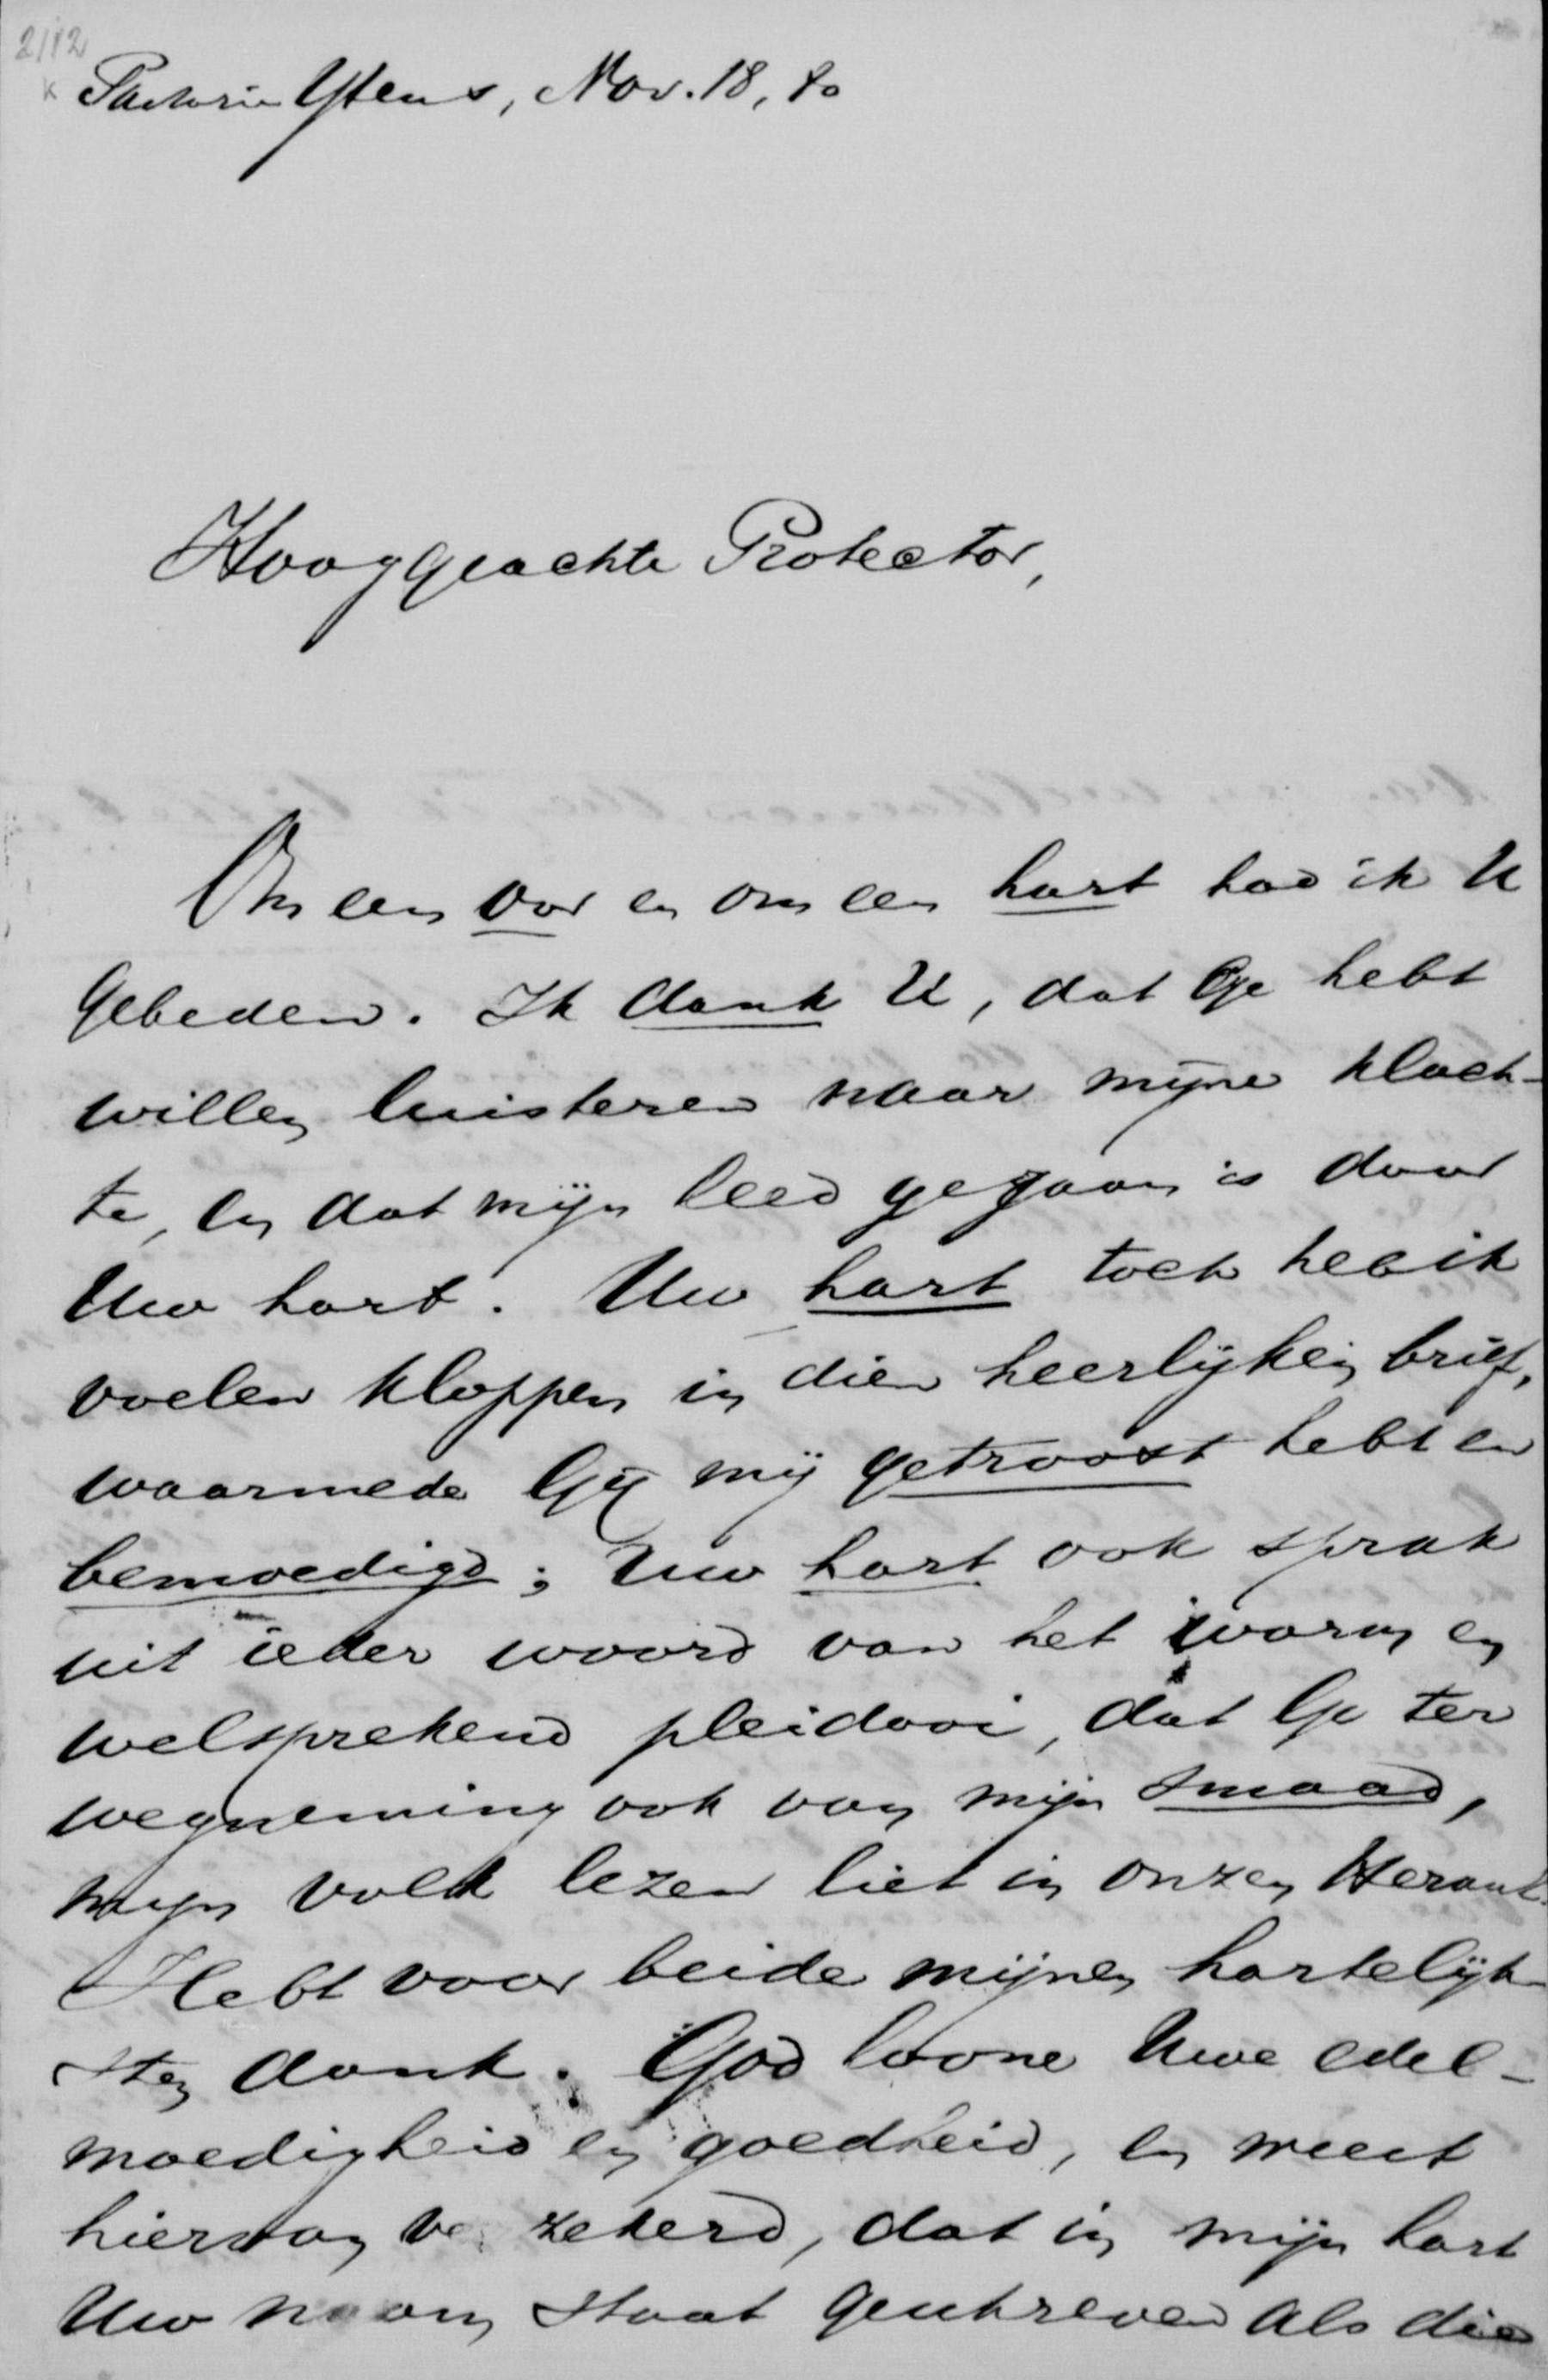 2112
Pastorie Ystens, Nov. 18, 80
Hooggeachte Protector,
Om een oor en om een hart had ik U
gebeden. Ik dank U, dat Ge hebt
willen luisteren naar mijne klach-
te, en dat mijn leed gegaan is door
Uw hart. Uw hart toch heb ik
voelen kloppen in dien heerlijken brief,
waarmede Gij mij getroost hebt en
bemoedigd; Uw hart ook sprak
uit ieder woord van het warm en
welsprekend pleidooi, dat Ge ter
wegneming ook van mijn smaad,
mijn volk lezen liet in onzen Heraut.
Hebt voor beide mijnen hartelijk-
sten dank. God loone Uwe edel-
moedigheid en goedheid, en weest
hiervan verzekerd, dat in mijn hart
Uw naam staat geschreven als die